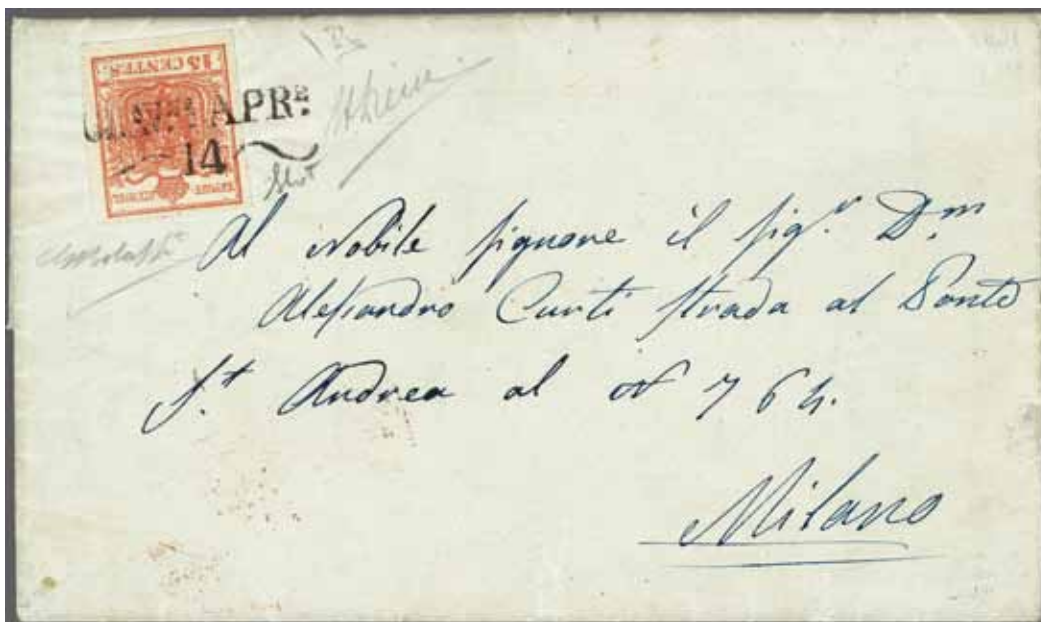 15 CENTES.
APRE.
14
Al Nobile Signore il Sigr. Dn
Alessandro Curti Strada al Ponte
St. Andrea al N 764.
Milano